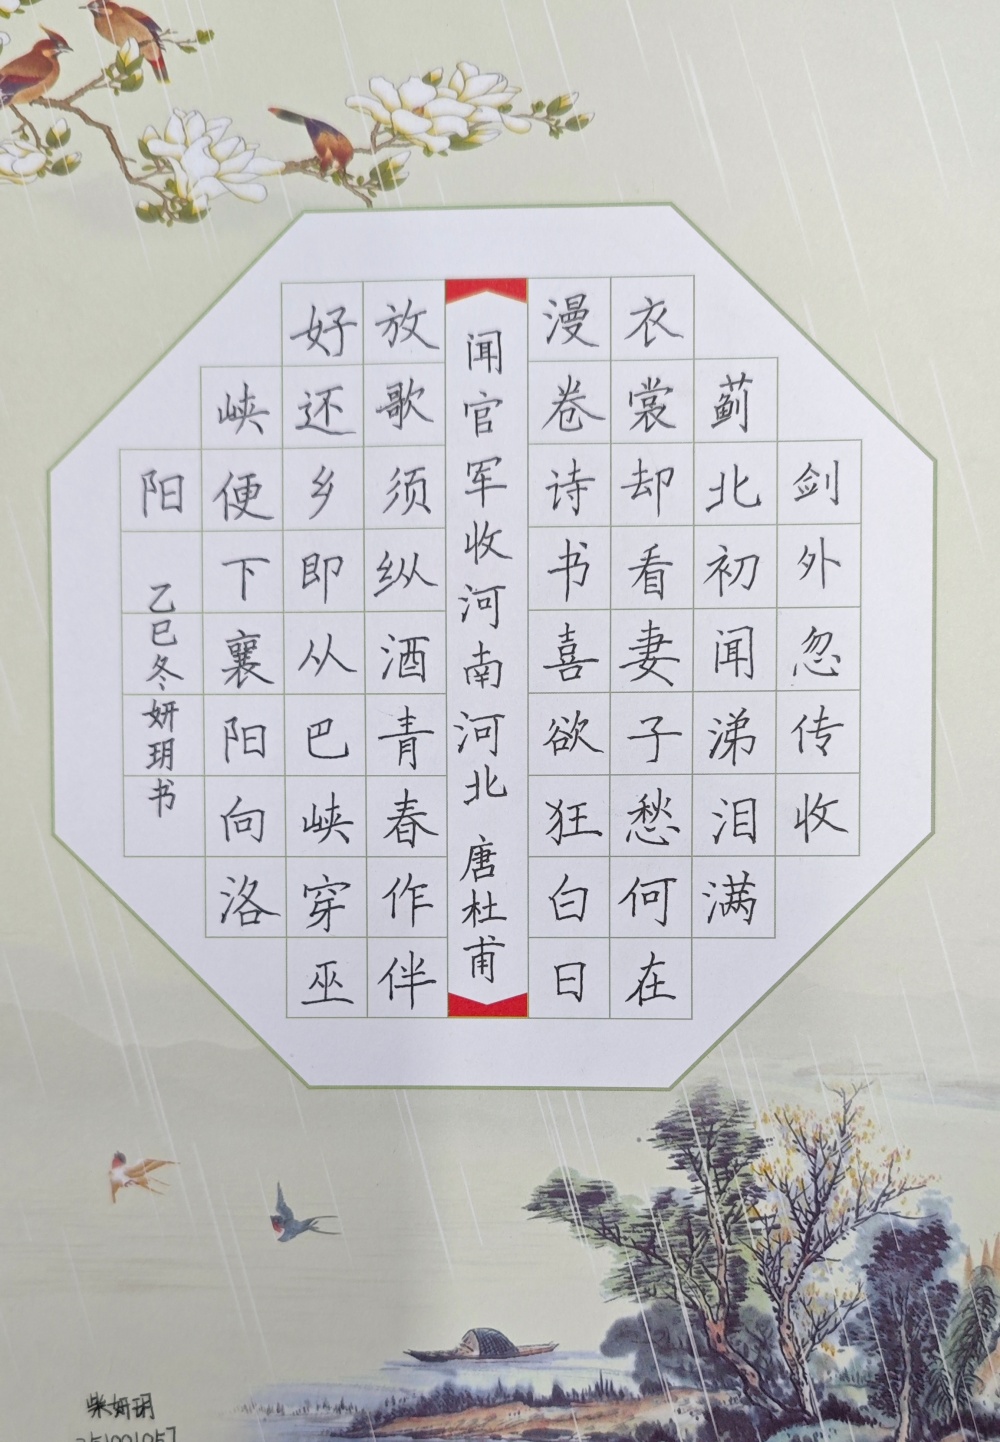 剑外忽传收
蓟北初闻涕泪满
衣裳却看妻子愁何在
漫卷诗书喜欲狂白日
闻官军收河南河北 唐杜甫
放歌须纵酒青春作伴
好还乡即从巴峡穿巫
峡便下襄阳向洛
阳
乙巳冬妍玥书
柴妍玥